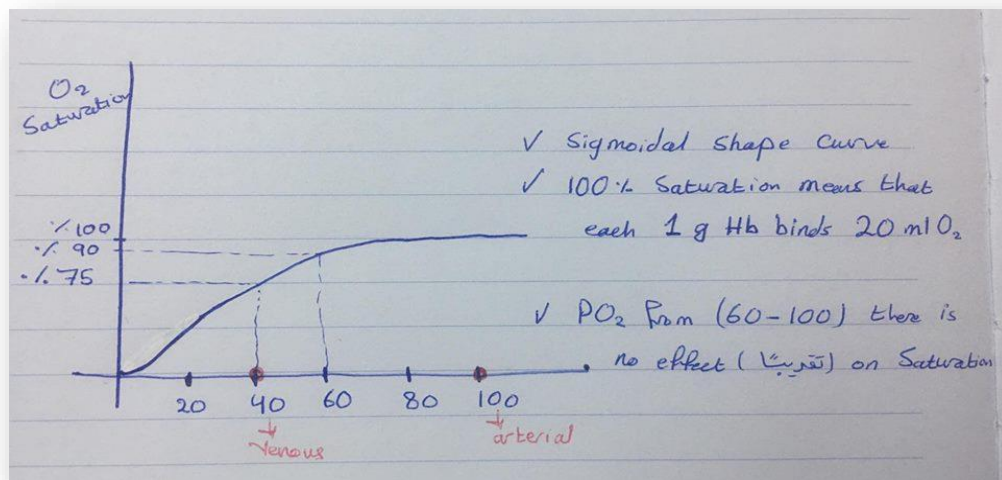 O2
Saturation
٪100
٪90
٪75
20 40 60 80 100
venous
arterial
✓ Sigmoidal Shape Curve
✓ 100٪ Saturation means that
each 1 g Hb binds 20 ml O2
✓ PO2 from (60-100) there is
no effect (تقريبًا) on Saturation